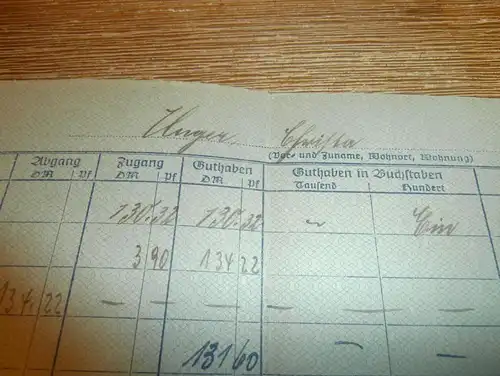 Unger, Christa
(Vor- und Zuname, Wohnort, Wohnung)
Abgang Zugang Guthaben Guthaben in Buchstaben
DM Pf DM Pf DM Pf Tausend Hundert
130.32 130.32 – Ein
3 90 134 22
134.22 — — — — — —
131 60 — —